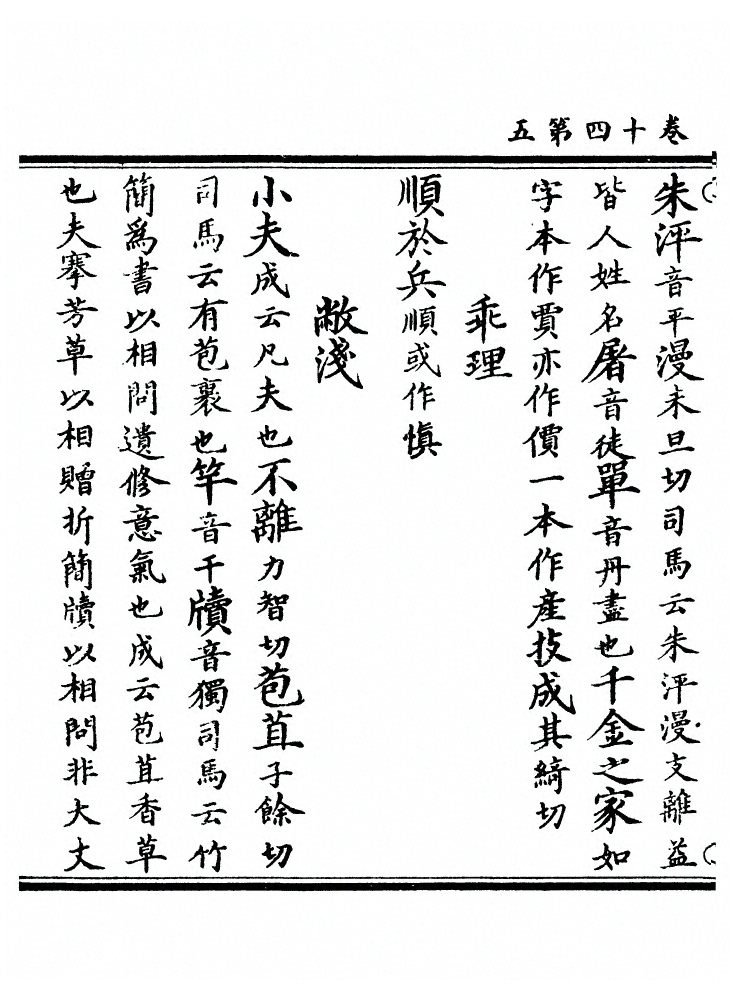 卷十四第五
朱泙音平漫末旦切司馬云朱泙漫支離益
皆人姓名屠音徒單音丹盡也千金之家如
字本作賈亦作價一本作產技成其綺切
乖理
順於兵順或作慎
敝淺
小夫成云凡夫也不離力智切苞苴子餘切
司馬云有苞裹也竿音干牘音獨司馬云竹
簡爲書以相問遺修意氣也成云苞苴香草
也夫搴芳草以相贈折簡牘以相問非大丈